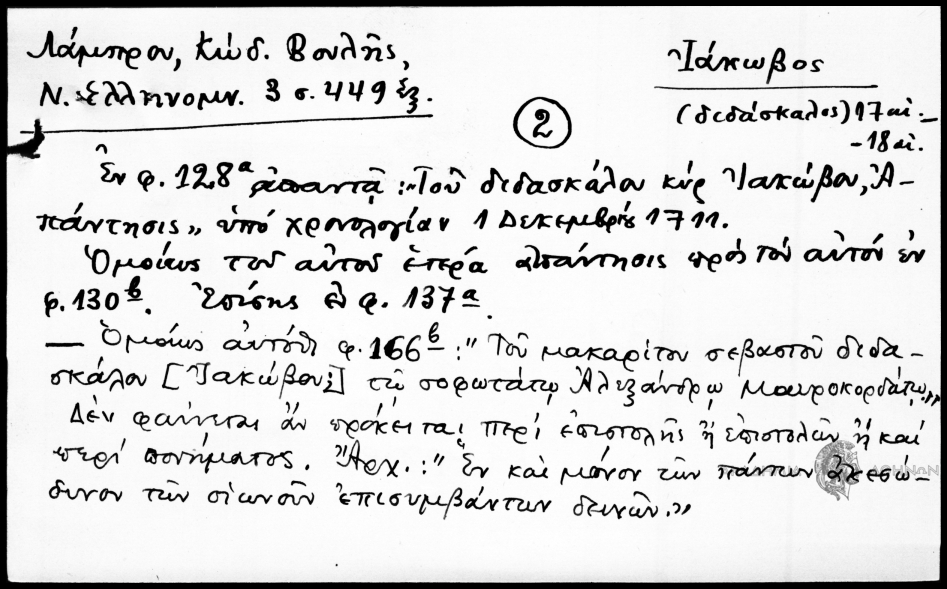 Λάμπρου, Κώδ. Βουλῆς,
Ν. Ἑλληνομν. 3 σ. 449 ἑξ.
Ἰάκωβος
(διδάσκαλος) 17 αἰ. –
- 18 αἰ.
2
Ἐν φ. 128α ἀπαντᾷ: "Τοῦ διδασκάλου κύρ Ἰακώβου, Ἀ-
πάντησις" ὑπό χρονολογίαν 1 Δεκεμβρίου 1711.
Ὁμοίως τοῦ αὐτοῦ ἑτέρα ἀπάντησις πρός τόν αὐτόν ἐν
φ. 130β. Ἐπίσης ἐν φ. 137α.
— Ὁμοίως αὐτόθι φ. 166β: "Τοῦ μακαρίτου σεβαστοῦ διδα-
σκάλου [Ἰακώβου;] τῷ σοφωτάτῳ Ἀλεξάνδρῳ Μαυροκορδάτῳ"
Δέν φαίνεται ἄν πρόκειται περί ἐπιστολῆς ἤ ἐπιστολῶν ἤ καί
περί πονήματος. Ἄρχ.: "Ἐν καί μόνον τῶν πάντων ἀκεσώ-
δυνον τῶν οἱωνοῦν ἐπισυμβάντων δεινῶν."
ΑΘΗΝΩΝ